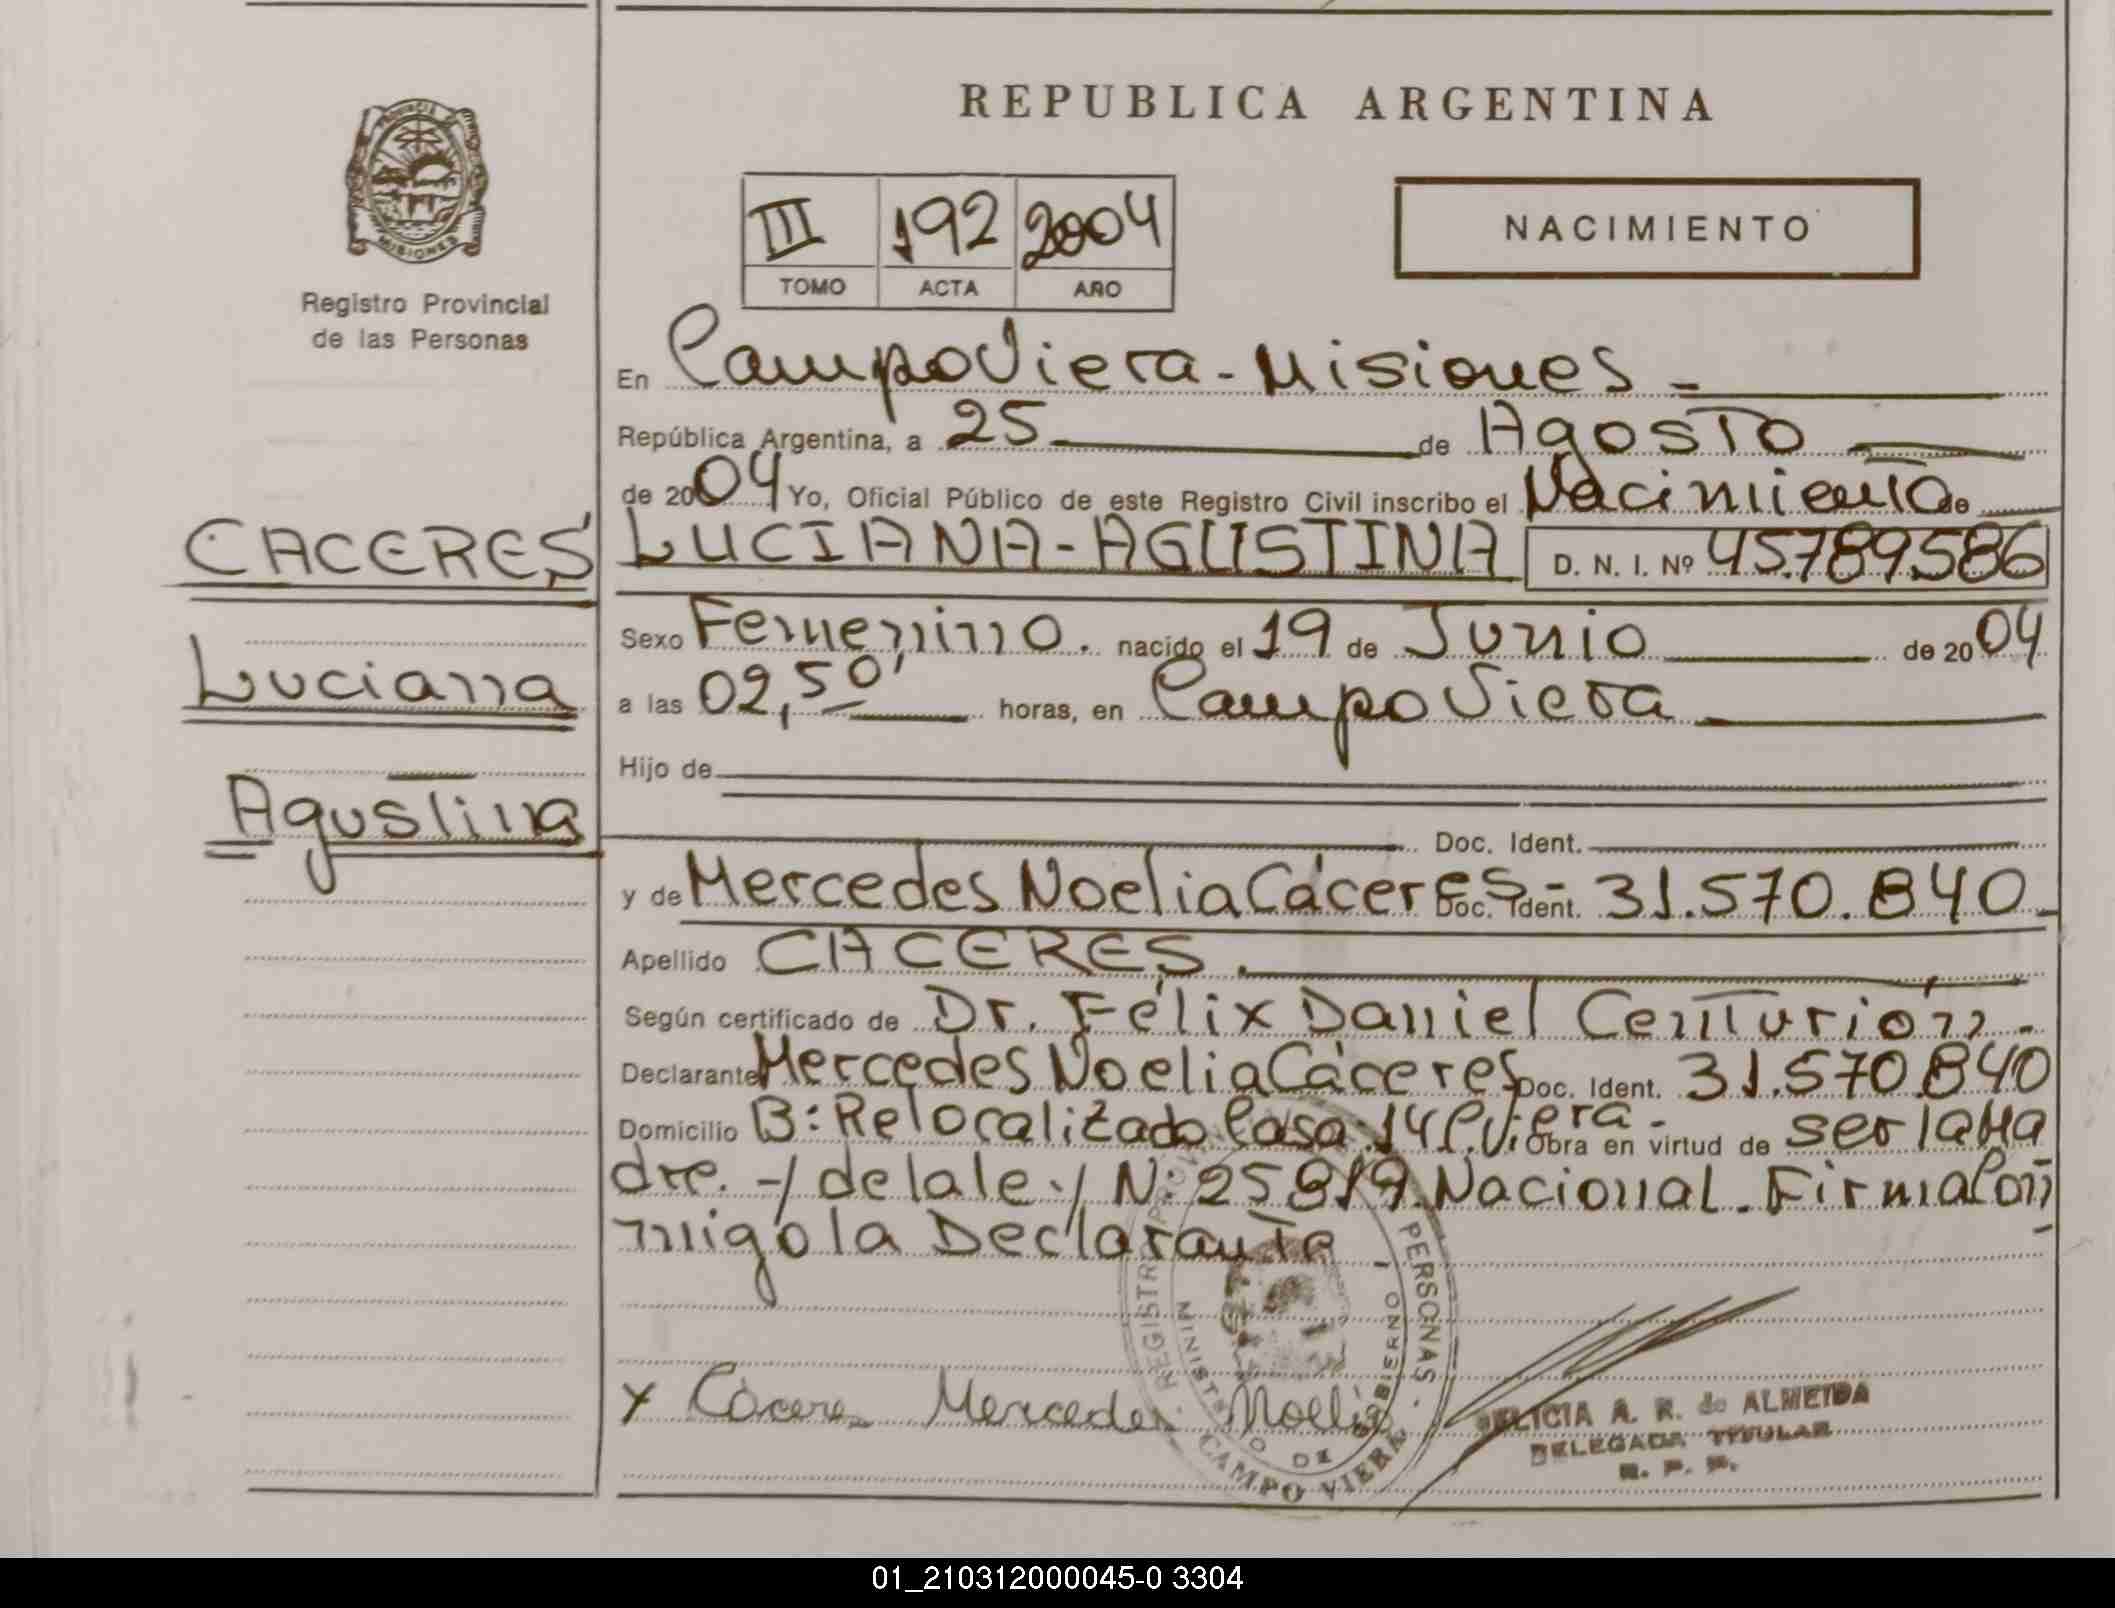 REPUBLICA ARGENTINA
PROVINCIA DE MISIONES
Registro Provincial
de las Personas
III 192 2004
TOMO ACTA AÑO
NACIMIENTO
En Campo Viera - Misiones -
República Argentina, a 25 de Agosto
de 2004 Yo, Oficial Público de este Registro Civil inscribo el Nacimiento de
CACERES
Luciana
Agustina
LUCIANA - AGUSTINA D. N. I. Nº 45.789.586
Sexo Femenino. nacido el 19 de Junio de 2004
a las 02,50' horas, en Campo Viera
Hijo de
Doc. Ident.
y de Mercedes Noelia Cáceres - Doc. Ident. 31.570.840
Apellido CACERES.
Según certificado de Dr. Félix Daniel Centurión -
Declarante Mercedes Noelia Cáceres Doc. Ident. 31.570.840
Domicilio B: Relocalizado Casa 14 C. Viera - Obra en virtud de ser la Ma
dre. -/ de la le y N: 25819. Nacional. Firma Con
migo la Declarante
x Cácere Mercedes Noelia
REGISTRO PERSONAS
MINISTERIO DE GOBIERNO
CAMPO VIERA
FELICIA A. R. de ALMEIDA
DELEGADA TITULAR
R. P. P.
01_210312000045-0 3304